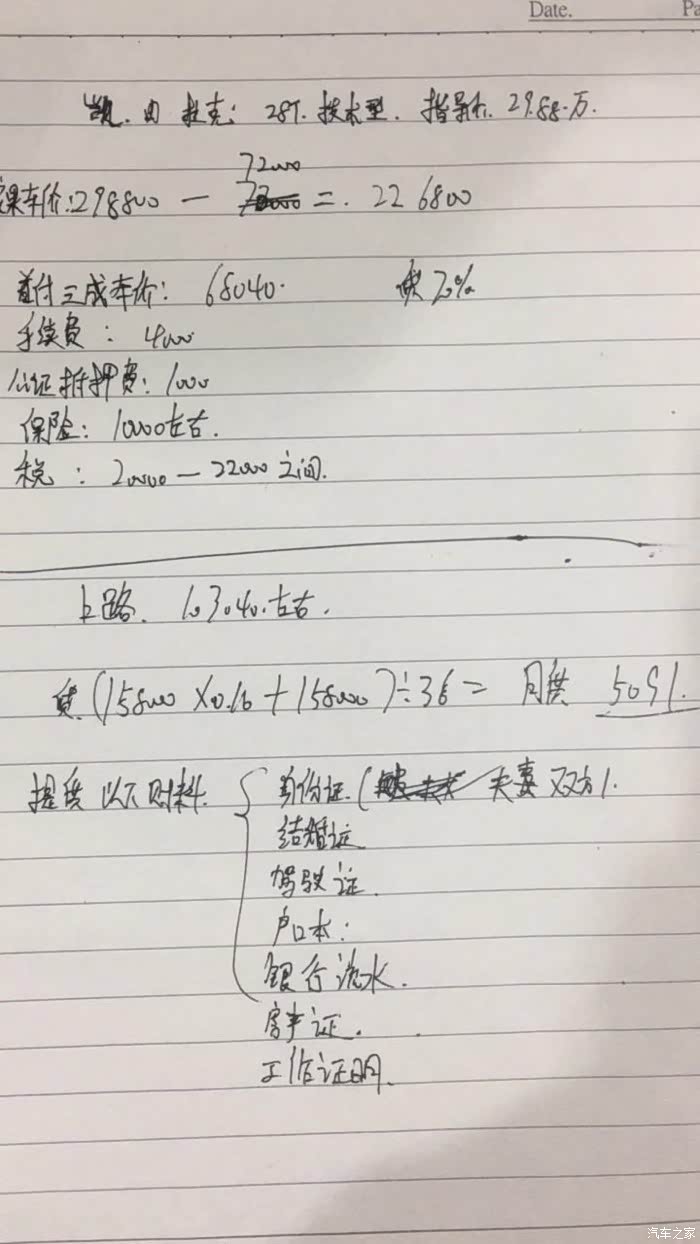 Date. Pa
凯.迪 拉克: 28T.技术型. 指导价. 29.88.万.
72000
裸车价:298800 — = 226800
首付三成车价: 68040. 70%
手续费: 4000
公证抵押费: 1000
保险: 10000左右.
税: 20000 — 22000 之间.
上路. 103040.左右.
贷.(158000 X0.16 + 158000)÷36= 月供 5091.
提供 以下 材料.
身份证.( 夫妻 双方).
结婚证
驾驶证.
户口本:
银行流水.
房产证.
工作证明.
汽车之家